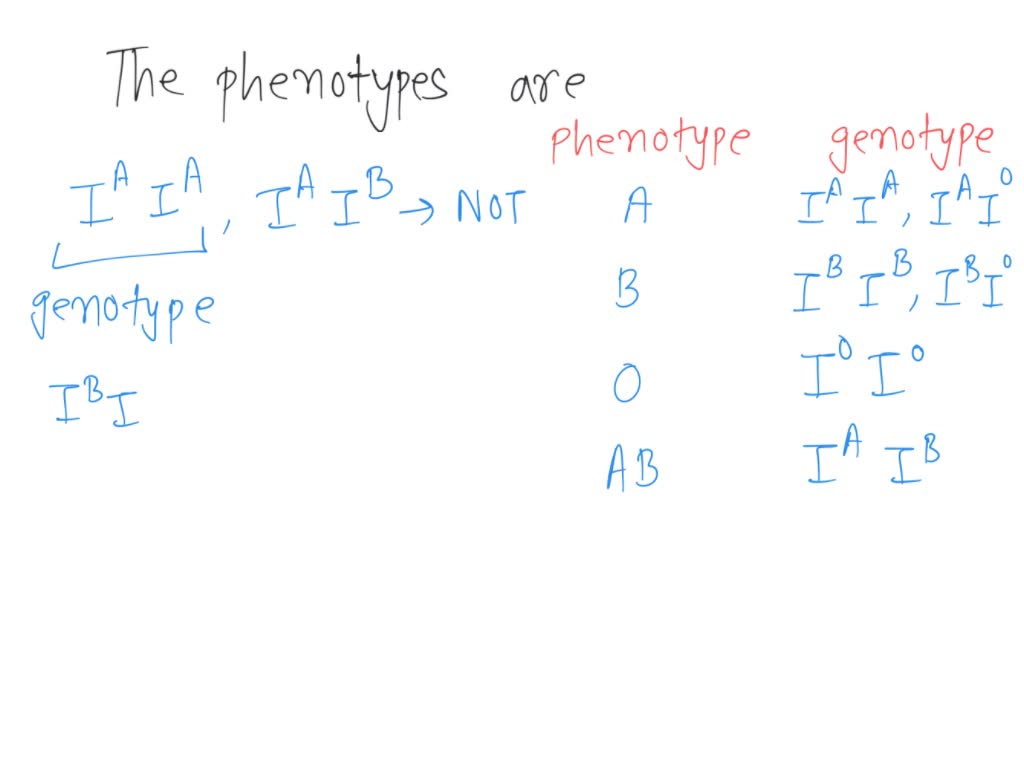 The phenotypes are
phenotype genotype
I^A I^A, I^A I^B → NOT A I^A I^A, I^A I^O
genotype B I^B I^B, I^B I^O
I^B I O I^O I^O
AB I^A I^B